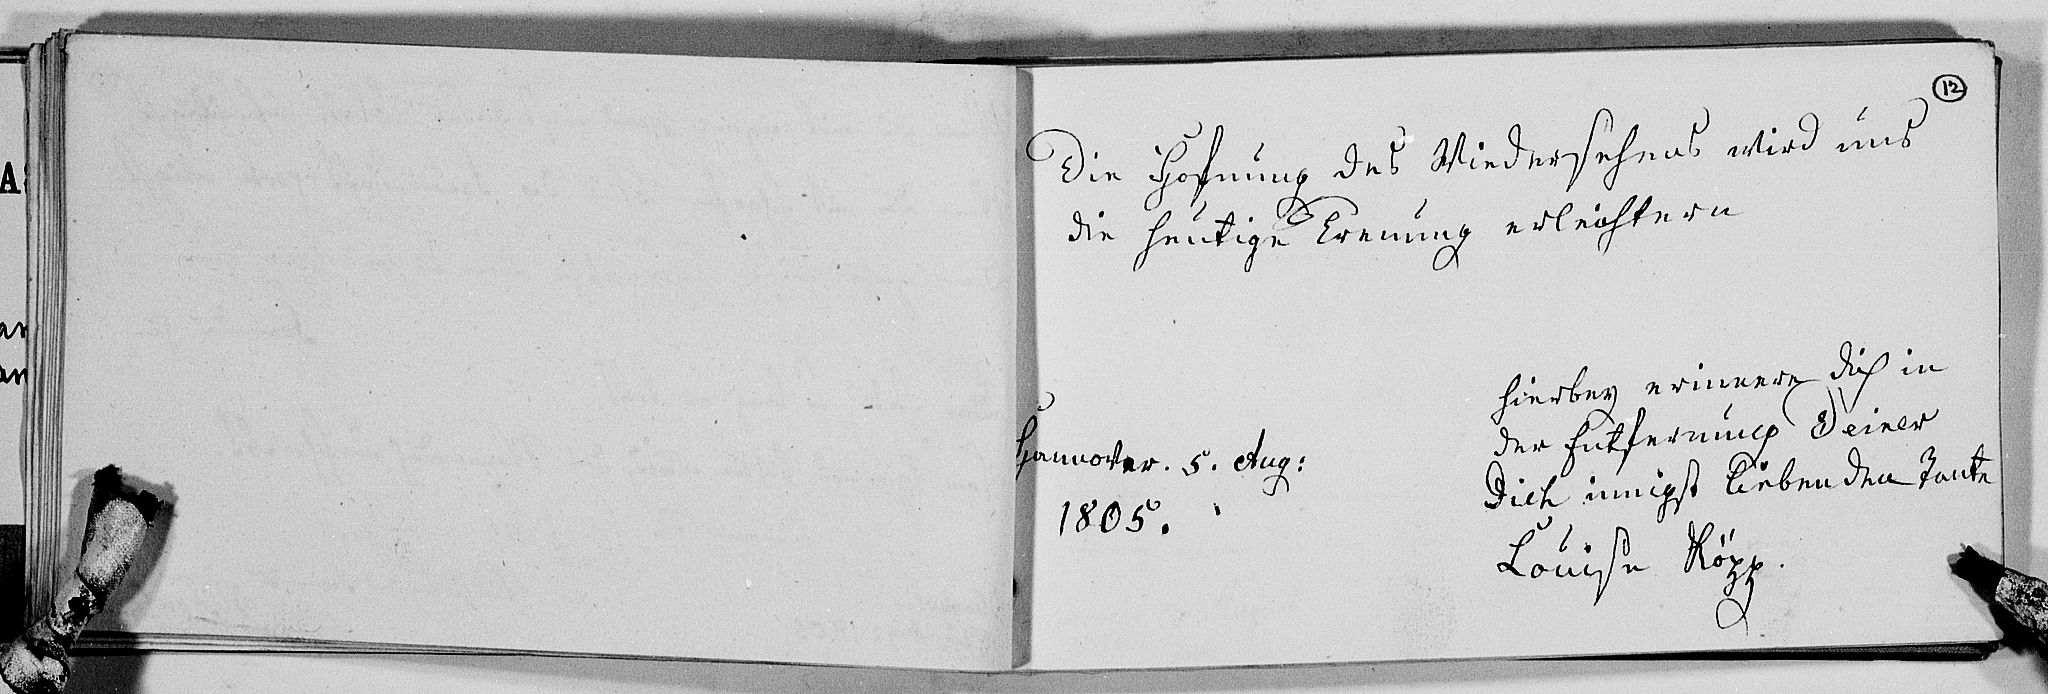 12
Die Hofnung des Wiedersehens wird uns
die heutige Trennung erleichtern
hierbey erinnere dich in
der Entfernung Deiner
Dich innigst liebenden Tante
Louise Köpp.
Hannover. 5. Aug:
1805.